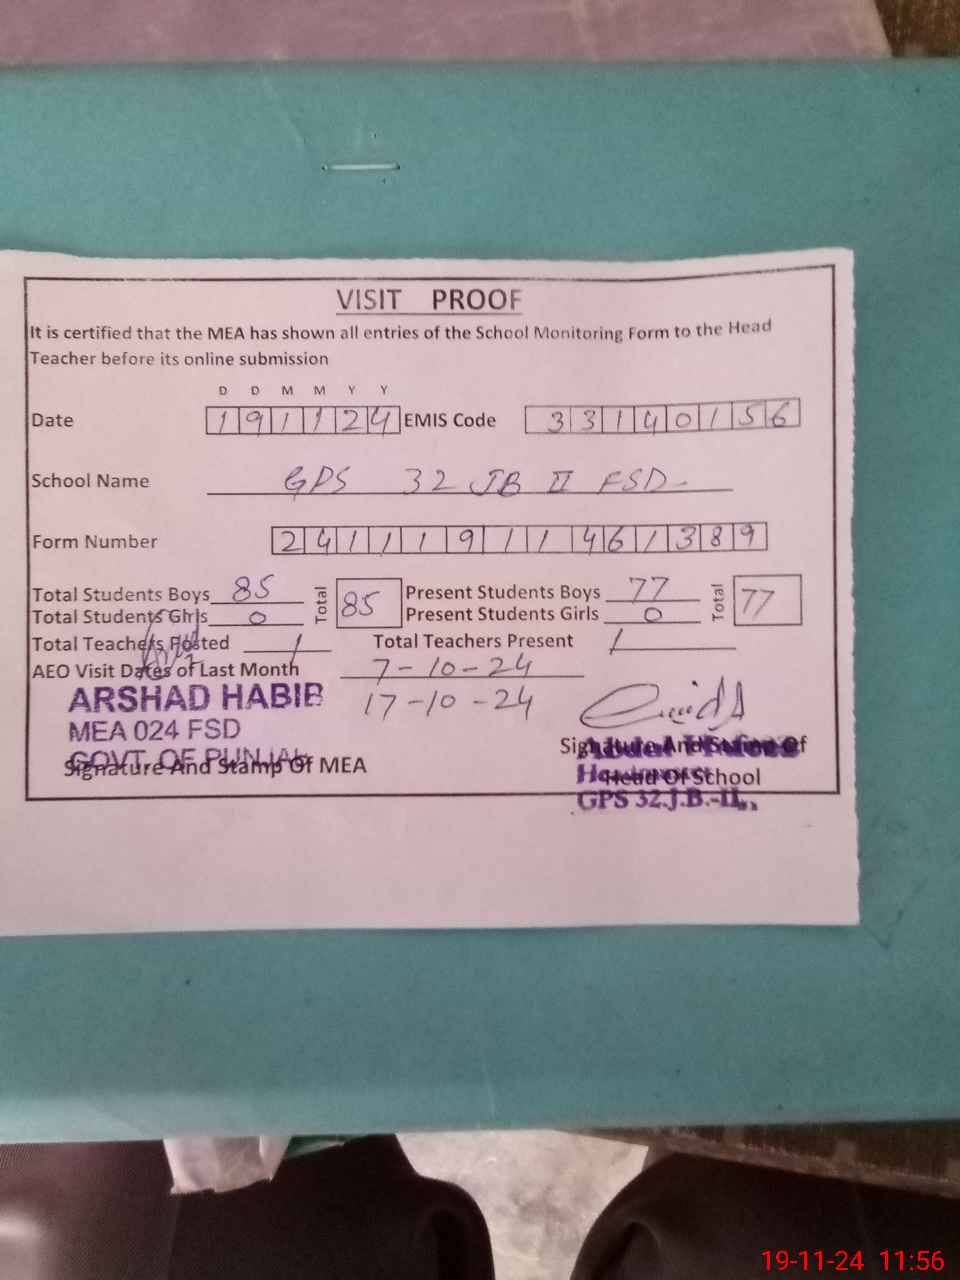 VISIT PROOF
It is certified that the MEA has shown all entries of the School Monitoring Form to the Head
Teacher before its online submission
D D M M Y Y
Date 191124 EMIS Code 33140156
School Name GPS 32 JB II FSD-
Form Number 24111911461389
Total Students Boys 85 Total 85 Present Students Boys 77 Total 77
Total Students Girls 0 Present Students Girls 0
Total Teachers Posted 1 Total Teachers Present 1
AEO Visit Dates of Last Month 7-10-24
17-10-24
ARSHAD HABIB
MEA 024 FSD
GOVT. OF PUNJAB
Signature And Stamp Of MEA
Signature And Stamp Of
Head Of School
GPS 32.J.B.-II,,
19-11-24 11:56